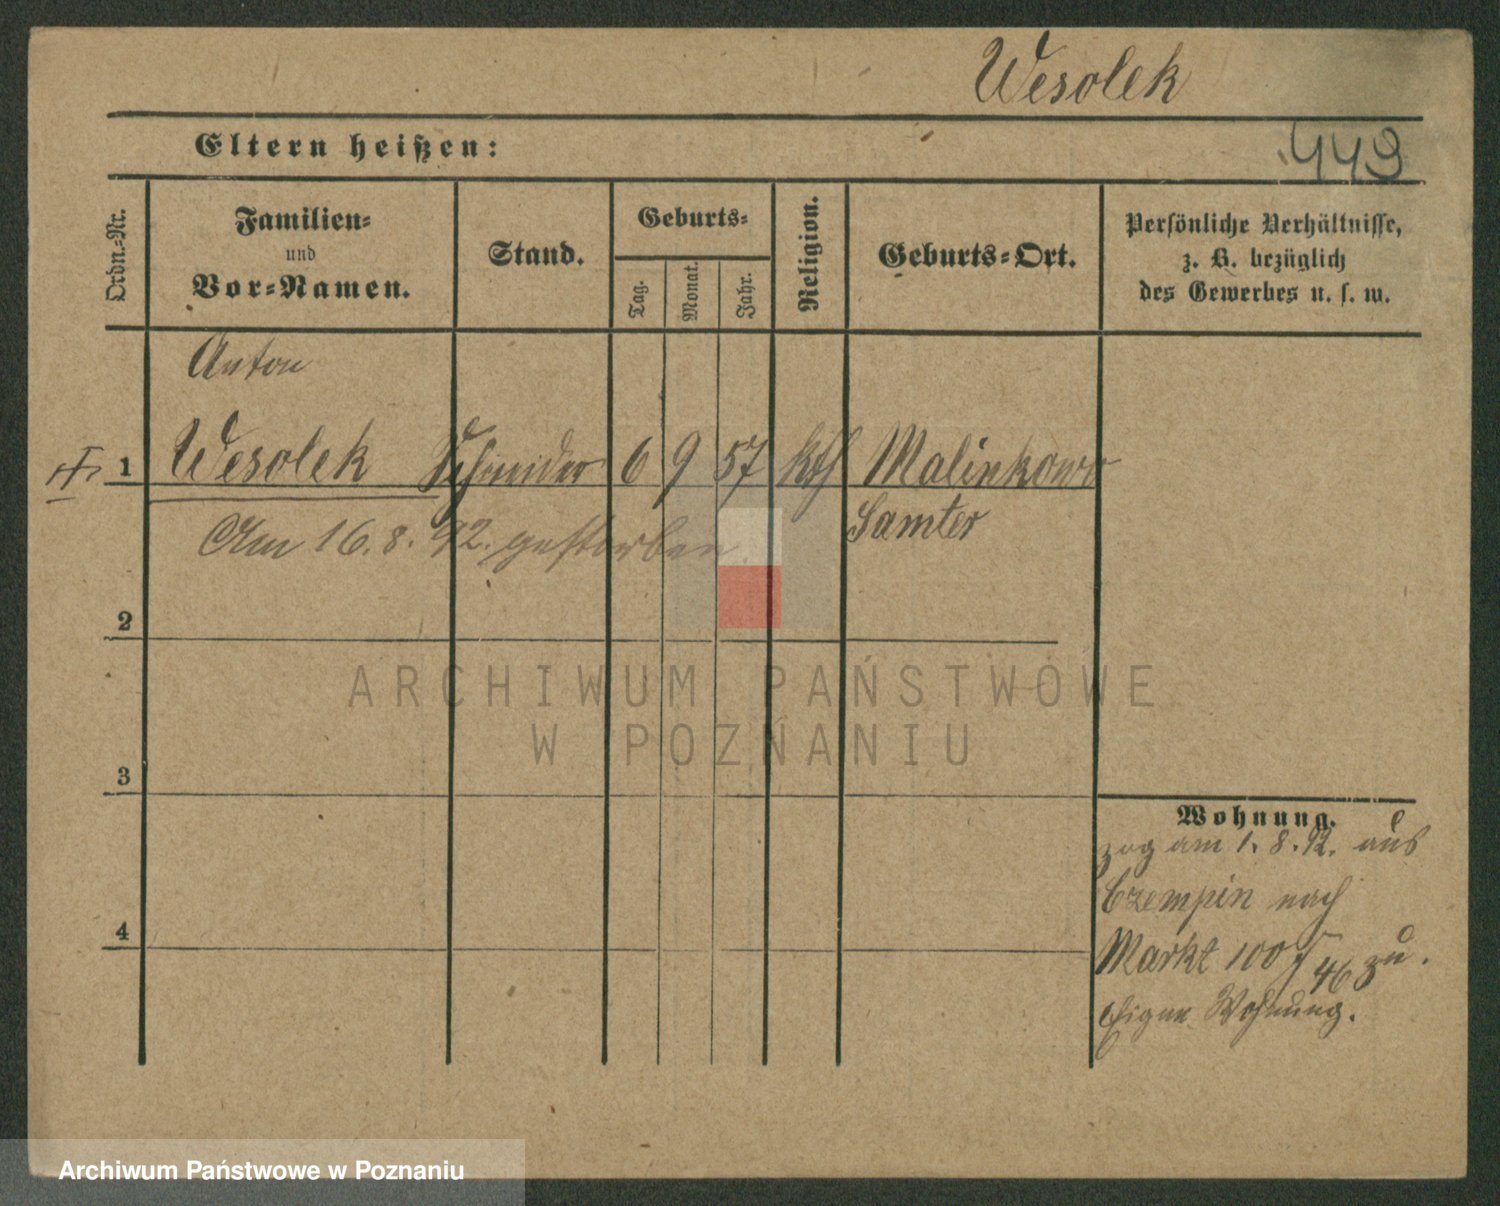 Wesolek
Eltern heißen:
449
Ordn.-Nr.
Familien-
und
Vor-Namen.
Stand.
Geburts-
Tag.
Monat.
Jahr.
Religion.
Geburts-Ort.
Persönliche Verhältnisse,
z. B. bezüglich
des Gewerbes u. s. w.
Anton
1 Wesolek Schneider 6 9 57 kth Malinkowo
Samter
Am 16. 8. 92. gestorben.
2
3
4
Wohnung.
zog am 1. 8. 92. aus
Czempin nach
Markt 100/46 zu.
Eigne Wohnung.
ARCHIWUM PAŃSTWOWE
W POZNANIU
Archiwum Państwowe w Poznaniu